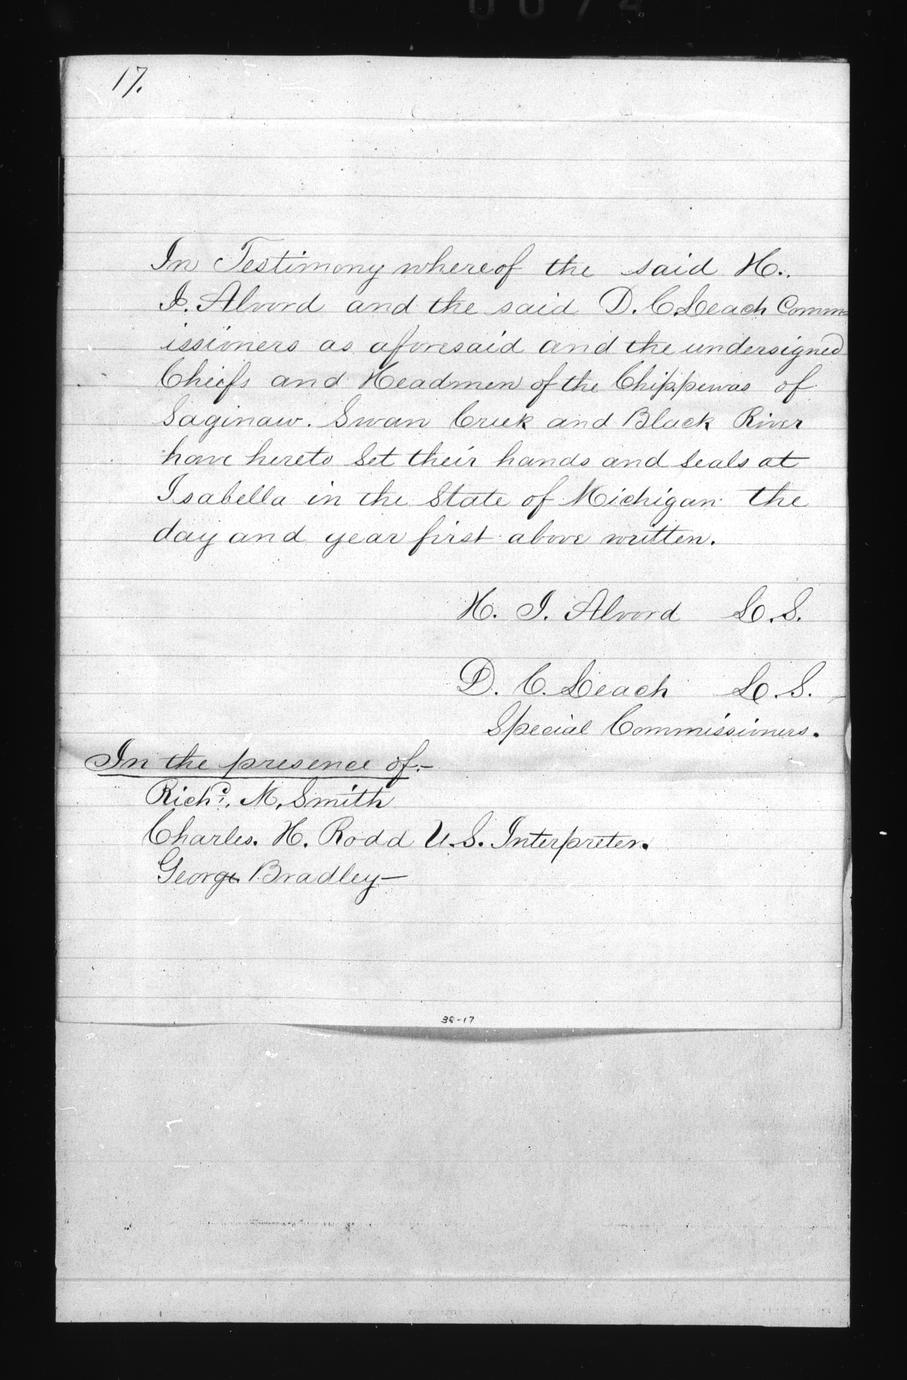 17.
In Testimony whereof the said H.
I. Alvord and the said D. C. Leach Comm-
issioners as aforesaid and the undersigned
Chiefs and Headmen of the Chippewas of
Saginaw. Swan Creek and Black River
have hereto Set their hands and Seals at
Isabella in the State of Michigan the
day and year first above written.
H. I. Alvord L. S.
D. C. Leach L. S.
Special Commissioners.
In the presence of-
Richd. M. Smith
Charles. H. Rodd U.S. Interpreter.
George Bradley-